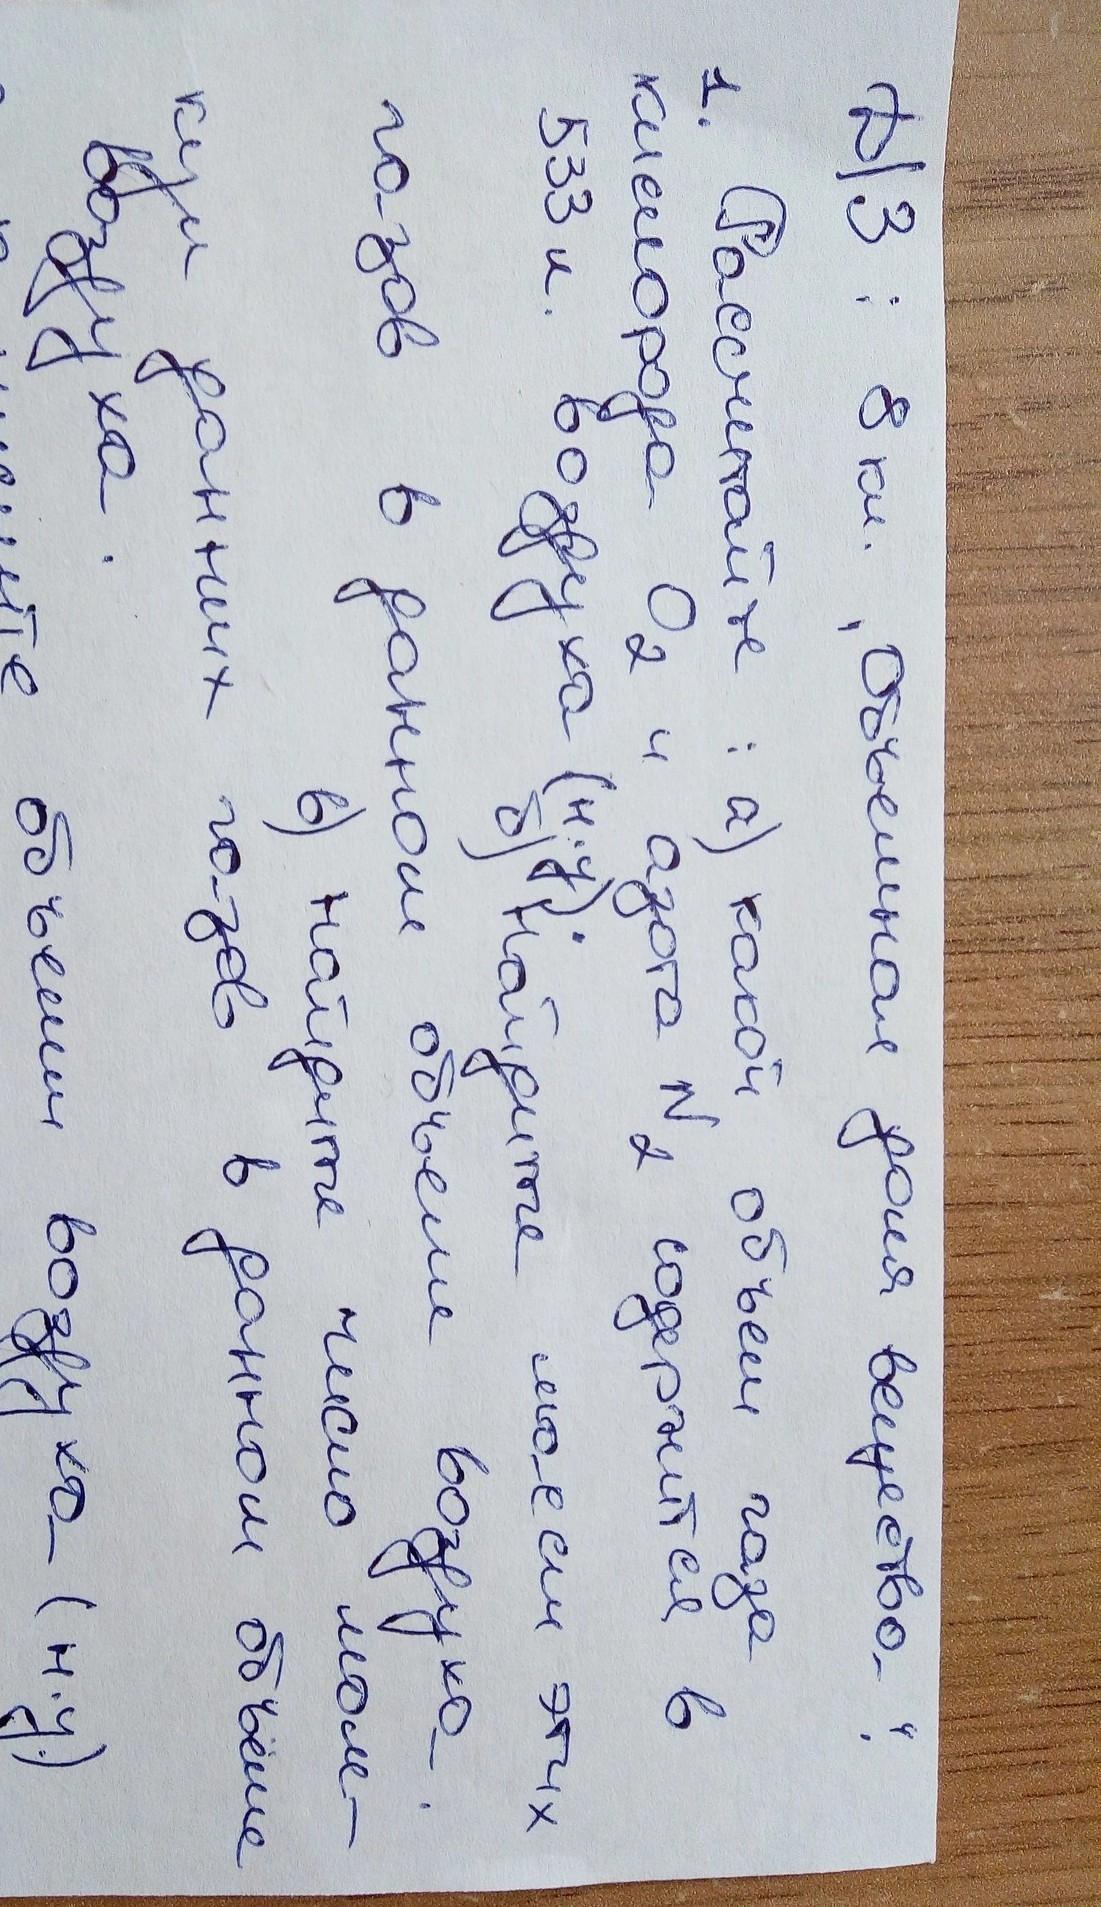 Д/З : 8 кл. „Объемная доля вещества":
1. Рассчитайте : а) какой объем газа
кислорода O2 и азота N2 содержится в
533 л. воздуха (н.у).
б) Найдите массы этих
газов в данном объеме воздуха.
в) найдите число моле-
кул данных газов в данном объёме
воздуха.
объемы воздуха (н.у.)